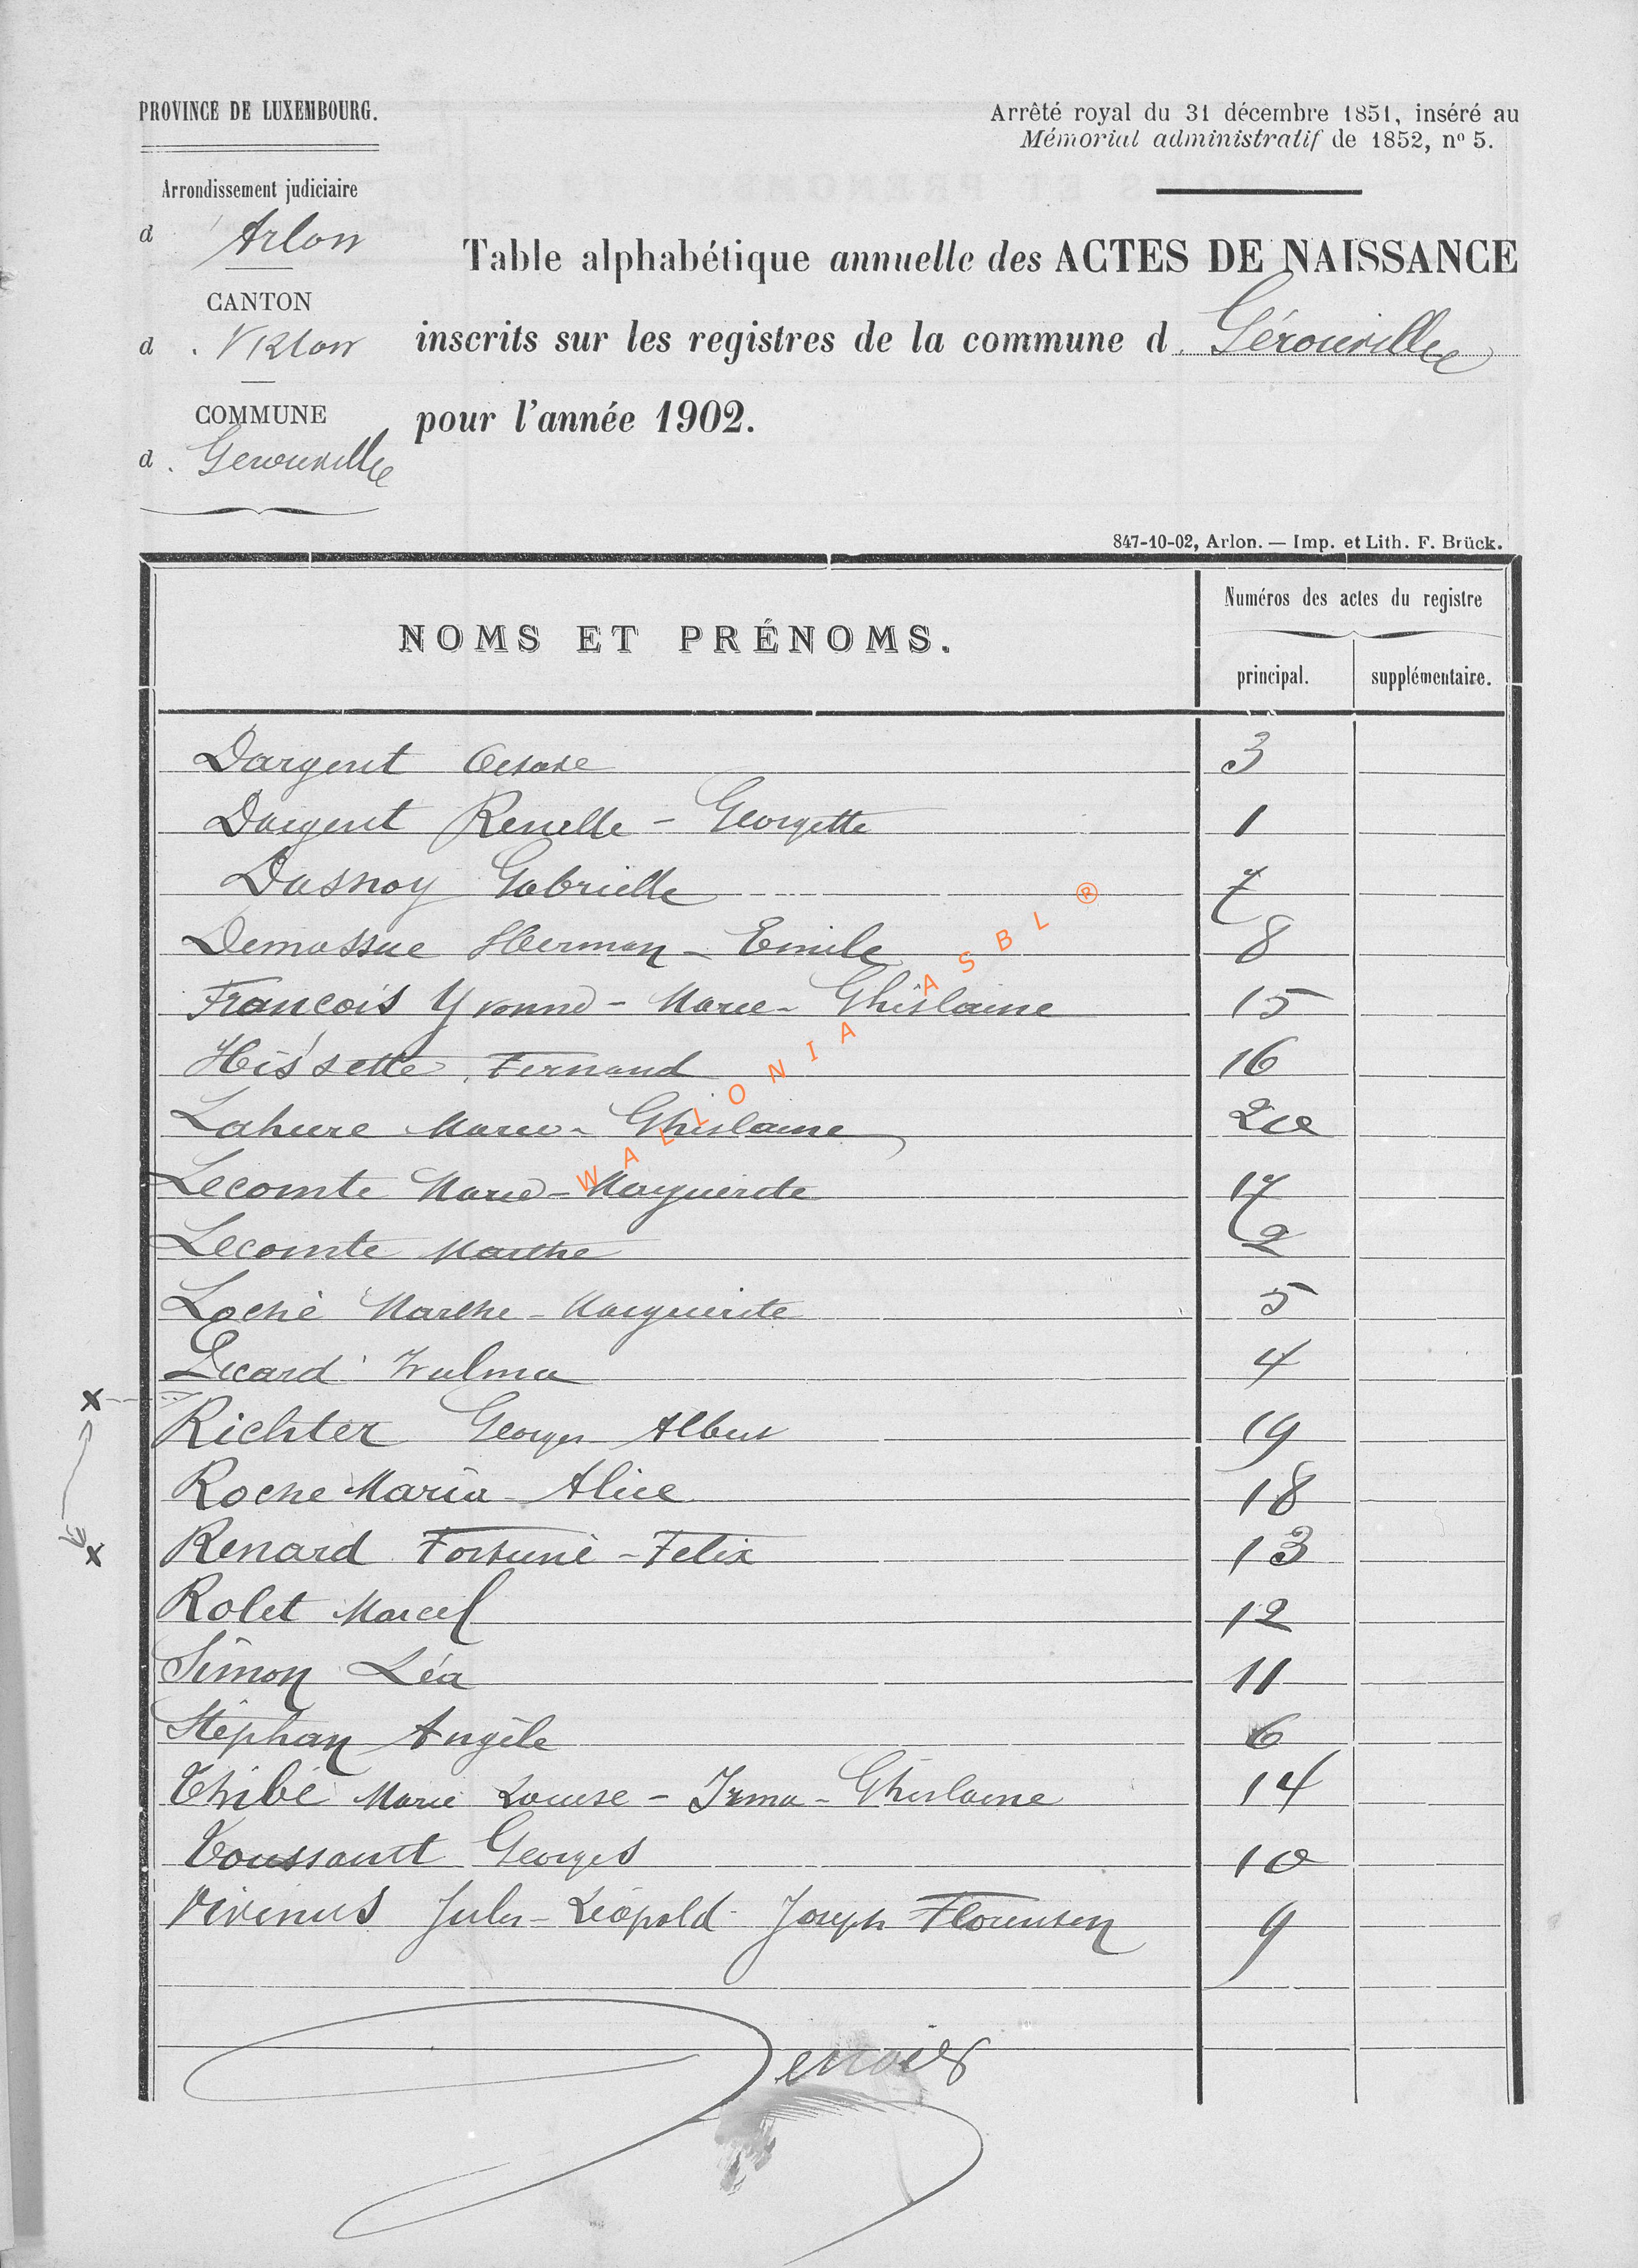 PROVINCE DE LUXEMBOURG.
Arrêté royal du 31 décembre 1851, inséré au
Mémorial administratif de 1852, nº 5.
Arrondissement judiciaire
d Arlon
CANTON
d Virton
COMMUNE
d Gérouville
Table alphabétique annuelle des ACTES DE NAISSANCE
inscrits sur les registres de la commune d Gérouville
pour l'année 1902.
847-10-02, Arlon. — Imp. et Lith. F. Brück.
NOMS ET PRÉNOMS.
Numéros des actes du registre
principal. supplémentaire.
Dargent 3
Dargent Renelle - Georgette 1
Dasnoy Gabrielle 7
Demassue Herman - Emile 8
François Yvonne - Marie - Ghislaine 15
Hissette Fernand 16
Lahure Marie - Ghislaine 20
Lecomte Marie - Marguerite 17
Lecomte Marthe 2
Loché Marthe - Marguerite 5
Picard 4
Richter Georges Albert 19
Roche Maria Alice 18
Renard Fortuné - Felix 13
Rolet Marcel 12
Simon Léa 11
Stéphan Angèle 6
Thibé Marie Louise - Irma - Ghislaine 14
Toussaint Georges 10
Vivinus Jules - Léopold Joseph 9
WALLONIA ASBL ®